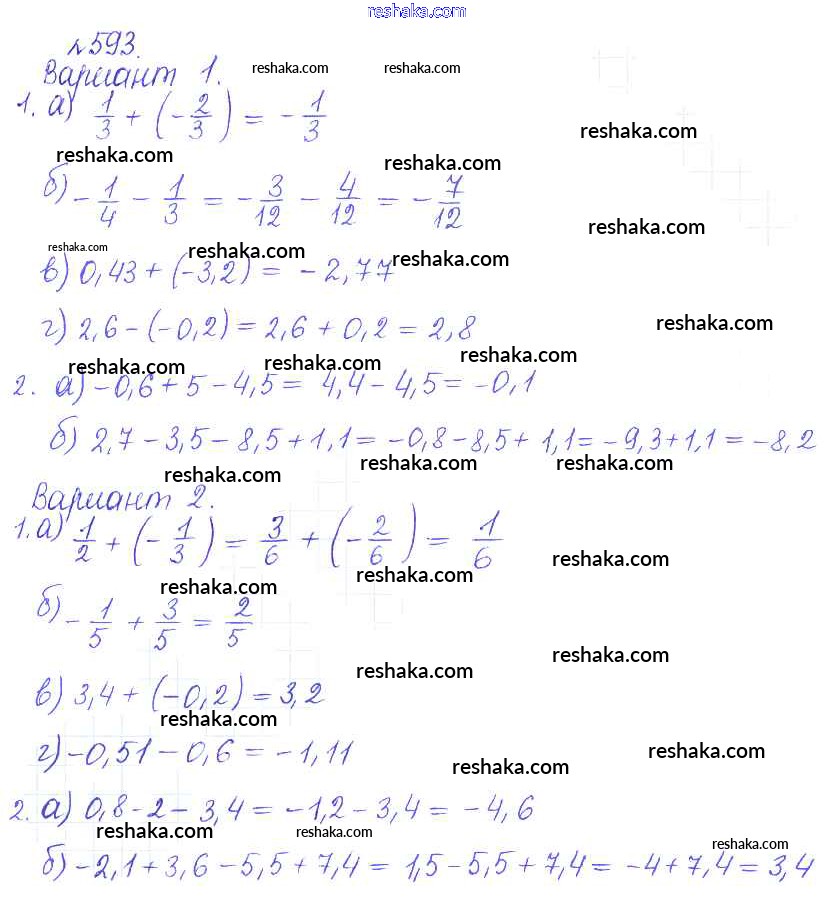 reshaka.com
№593.
Вариант 1. reshaka.com reshaka.com
1. а) 1/3 + (-2/3) = -1/3 reshaka.com
reshaka.com reshaka.com
б) -1/4 - 1/3 = -3/12 - 4/12 = -7/12 reshaka.com
reshaka.com reshaka.com reshaka.com
в) 0,43 + (-3,2) = -2,77
г) 2,6 - (-0,2) = 2,6 + 0,2 = 2,8 reshaka.com
reshaka.com reshaka.com reshaka.com
2. а) -0,6 + 5 - 4,5 = 4,4 - 4,5 = -0,1
б) 2,7 - 3,5 - 8,5 + 1,1 = -0,8 - 8,5 + 1,1 = -9,3 + 1,1 = -8,2
reshaka.com reshaka.com reshaka.com
Вариант 2.
1. а) 1/2 + (-1/3) = 3/6 + (-2/6) = 1/6 reshaka.com
reshaka.com reshaka.com
б) -1/5 + 3/5 = 2/5
reshaka.com reshaka.com
в) 3,4 + (-0,2) = 3,2
reshaka.com
г) -0,51 - 0,6 = -1,11 reshaka.com reshaka.com
2. а) 0,8 - 2 - 3,4 = -1,2 - 3,4 = -4,6
reshaka.com reshaka.com reshaka.com
б) -2,1 + 3,6 - 5,5 + 7,4 = 1,5 - 5,5 + 7,4 = -4 + 7,4 = 3,4